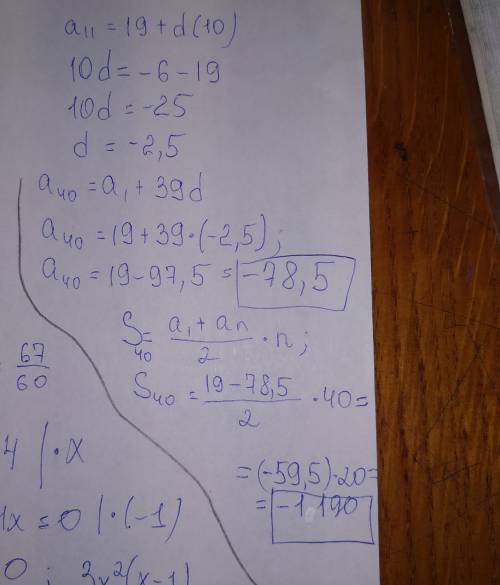 a₁₁ = 19 + d(10)
10d = -6 - 19
10d = -25
d = -2,5
a₄₀ = a₁ + 39d
a₄₀ = 19 + 39·(-2,5);
a₄₀ = 19 - 97,5 = -78,5
S₄₀ = (a₁ + aₙ)/2 · n;
67/60
S₄₀ = (19 - 78,5)/2 · 40 =
4 | · x
= (-59,5)·20 =
= -1 190
x = 0 | · (-1)
0 ; 3x²(x-1)